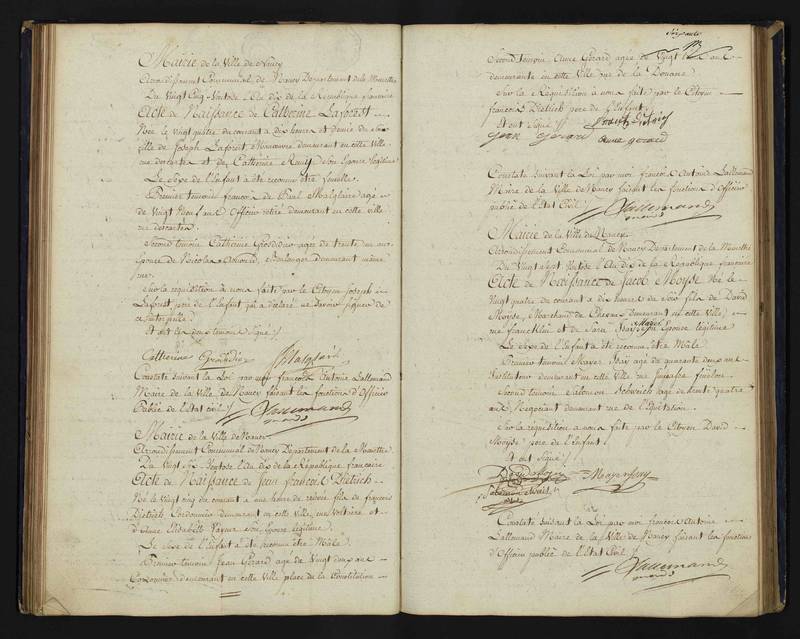 Mairie de la Ville de Nancy
Arrondissement Communal de Nancy Departement de la Meurthe
Du Vingt Cinq Ventose l'An dix de la Republique francaise
Acte de Naissance de Catherine Laforest
Née le vingt quatre du courant a dix heures et demie du soir
fille de Joseph Laforest, Manœuvre demeurant en cette Ville
rue et de Catherine son Epouse légitime
Le Sexe de l'Enfant a été reconnu être femelle.
Premier temoin francois de Paul Malglaive agé
de Vingt neuf ans Officier retiré demeurant en cette ville
rue
Second temoin Catherine agée de trente un ans
Epouse de Nicolas Boulanger demeurant même
rue.
Sur la requisition à nous faite par le Citoyen Joseph
Laforest, pere de l'Enfant qui a déclaré ne savoir signer de
ce interpellé.
Et ont les deux temoins signé.
Catherine Malglaive
Constaté suivant la Loi par moi francois Antoine Lallemand
Maire de la Ville de Nancy faisant les fonctions d'Officier
Public de l'Etat civil.
Lallemand
Mairie de la Ville de Nancy
Arrondissement Communal de Nancy Departement de la Meurthe
Du Vingt Six Ventose l'An dix de la Republique francaise
Acte de Naissance de Jean francois Dietrich
Né le Vingt cinq du courant a une heure de relevée fils de francois
Dietrich Cordonnier demeurant en cette ville, rue Voltaire et
d'Anne Elisabeth son Epouse légitime.
Le Sexe de l'Enfant a été reconnu être Mâle.
Premier temoin Jean Gerard agé de Vingt deux ans
Cordonnier demeurant en cette Ville place de la Constitution
Second temoin Anne Gerard agée de Vingt ans
demeurante en cette Ville rue de la Douane
Sur la Requisition à nous faite par le Citoyen
francois Dietrich pere de l'Enfant
Et ont signé
Dietrich
jean gerard anne gerard
Constaté suivant la Loi par moi francois Antoine Lallemand
Maire de la Ville de Nancy faisant les fonctions d'Officier
public de l'Etat Civil
Lallemand
Mairie de la Ville de Nancy
Arrondissement Communal de Nancy Departement de la Meurthe
Du Vingt Sept Ventose l'An dix de la Republique francaise
Acte de Naissance de Jacob Moyse Né le
Vingt quatre du courant a dix heures du soir fils de David
Moyse, Marchand de Chevaux demeurant en cette Ville,
rue franklin et de Sara son Epouse légitime
Le Sexe de l'Enfant a été reconnu être Mâle.
Premier temoin Mayer agé de quarante deux ans
Instituteur demeurant en cette Ville rue
Second temoin Salomon agé de trente quatre
ans, Negociant demeurant rue de l'Equitation.
Sur la requisition a nous faite par le Citoyen David
Moyse pere de l'Enfant
Et ont Signé
Constaté suivant la Loi par moi francois Antoine
Lallemand Maire de la Ville de Nancy faisant les fonctions
d'Officier public de l'Etat Civil
Lallemand